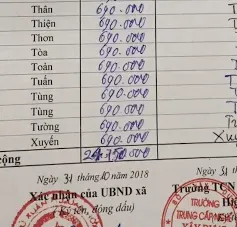 Thân 690.000 T
Thiện 690.000
Thơn 690.000
Tòa 690.000
Toản 690.000
Tuấn 690.000
Tùng 690.000
Tùng 690.000
Tường 690.000
Xuyến 690.000 Xu
cộng
Ngày 31 tháng 10 năm 2018 Ngày 31 t
Xác nhận của UBND xã Trường TCN
(Ký tên, đóng dấu)
TRƯỜNG
TRUNG CẤP NGHỀ